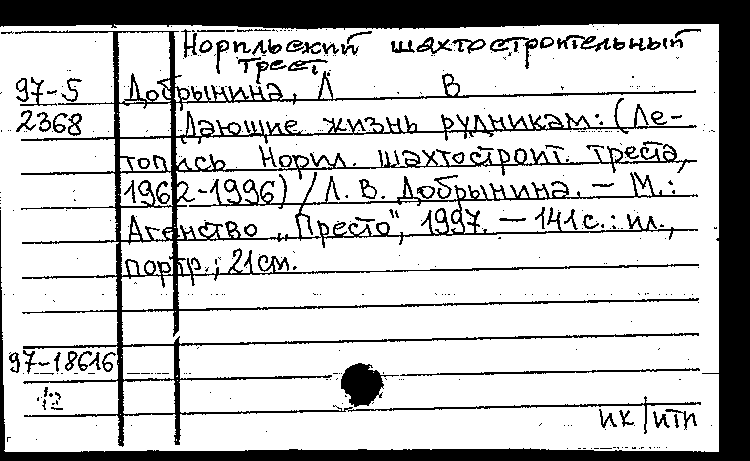 Норильский шахтостроительный
трест
97-5 Добрынина, Л В
2368 Дающие жизнь рудникам: (Ле-
топись Норил. шахтостроит. треста,
1962-1996) / Л. В. Добрынина. — М.:
Агенство „Престо", 1997. — 141с.: ил.,
портр.; 21см.
97-18616
12
ик/итп